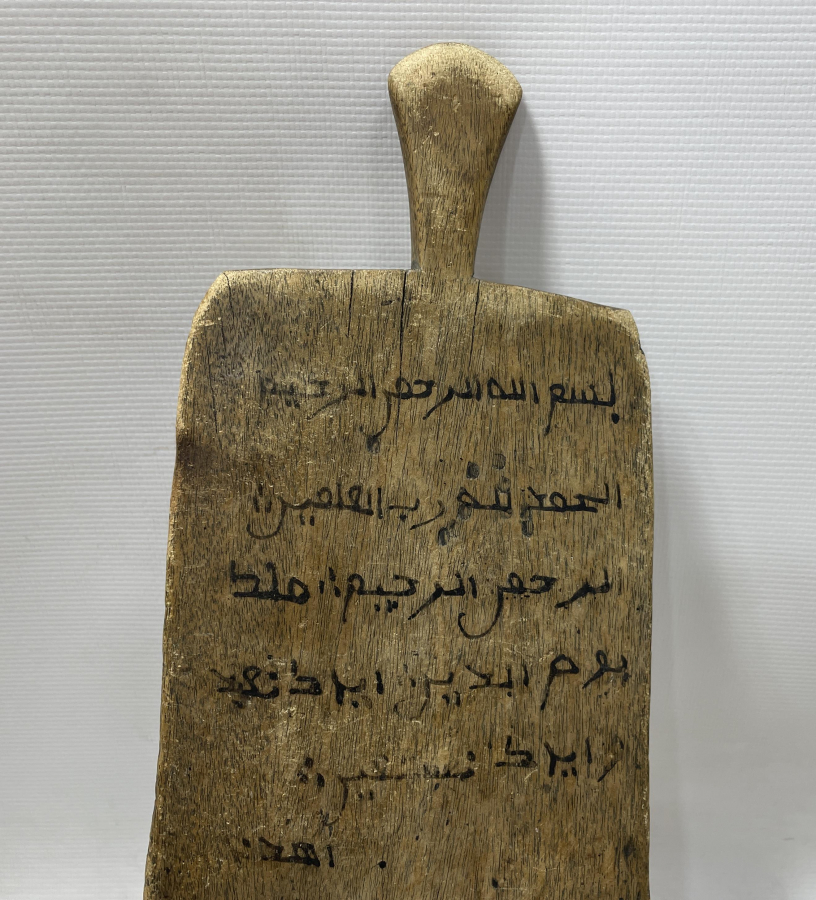 بسم الله الرحمن الرحيم
الحمد لله رب العلمين
الرحمن الرحيم ملك
يوم الدين اياك نعبد
و اياك نستعين
اهدنا